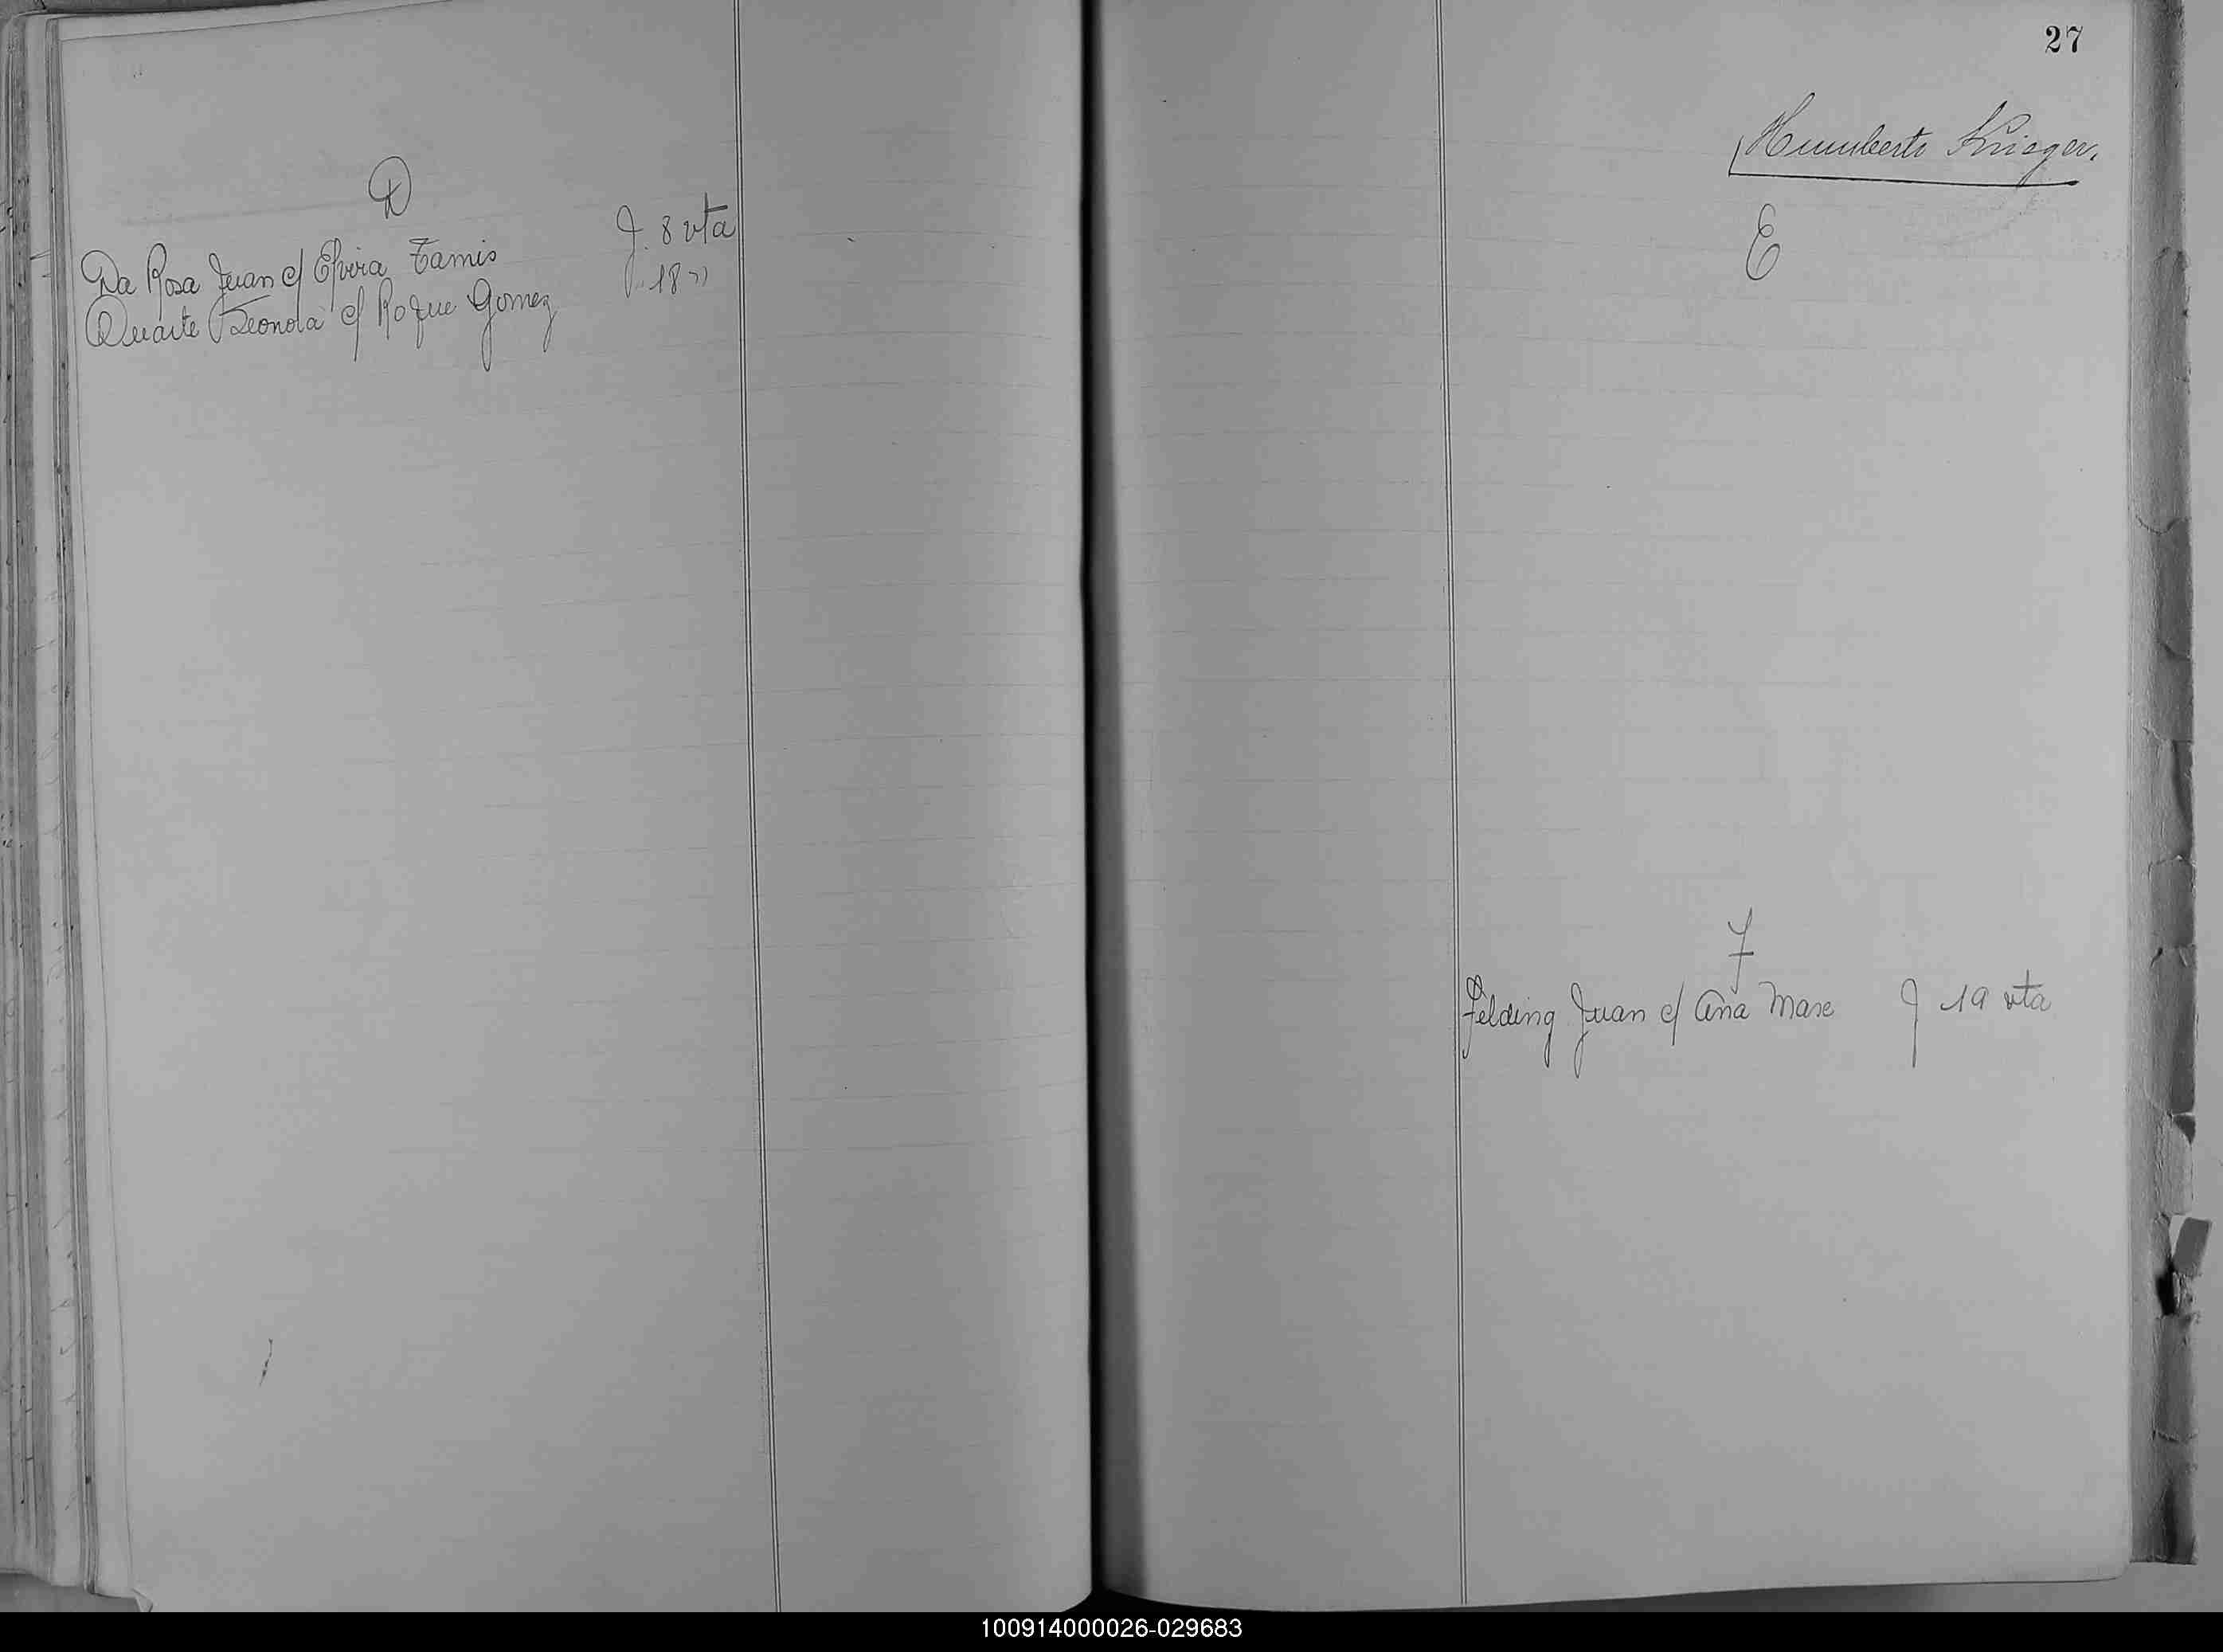 D
Da Rosa Juan c/ Elvira Tamis f. 8 vta
Duarte Leonora c/ Roque Gomez f. 18 "
27
Humberto Krieger.
E
F
Felding Juan c/ Ana Mase f 19 vta
100914000026-029683